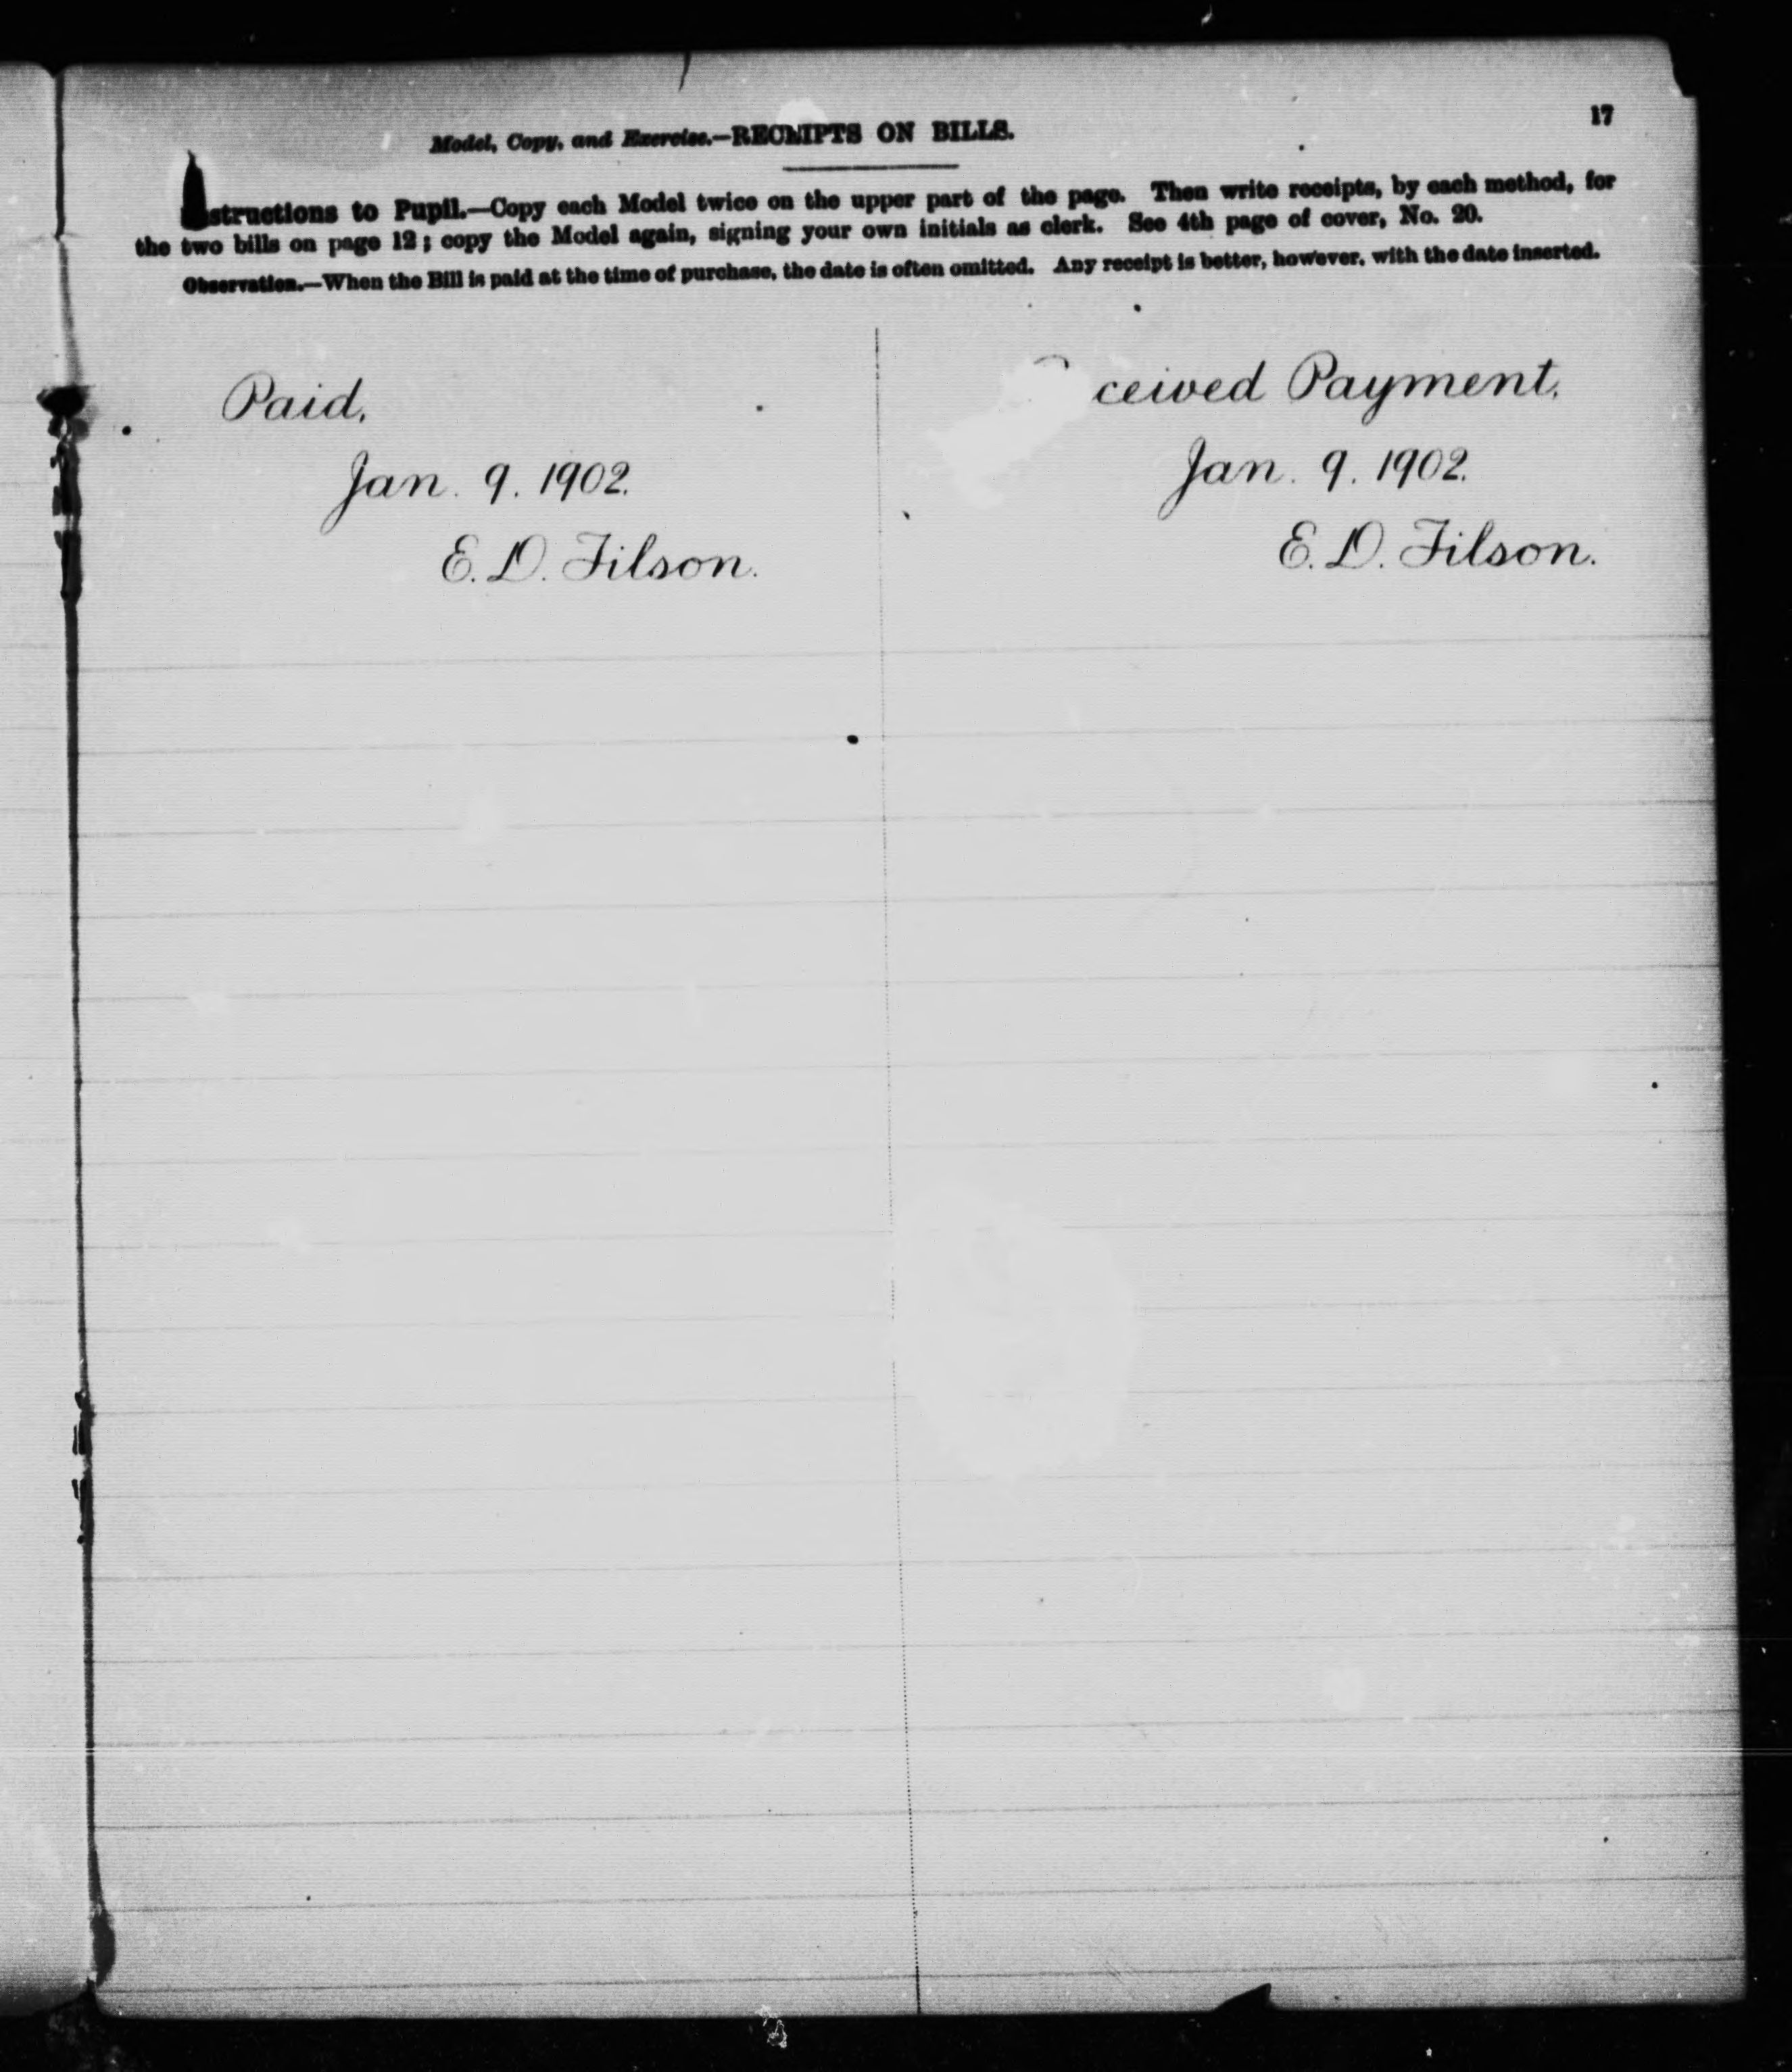 17
Model, Copy, and Exercise.—RECEIPTS ON BILLS.
Instructions to Pupil.—Copy each Model twice on the upper part of the page. Then write receipts, by each method, for
the two bills on page 12; copy the Model again, signing your own initials as clerk. See 4th page of cover, No. 20.
Observation.—When the Bill is paid at the time of purchase, the date is often omitted. Any receipt is better, however, with the date inserted.
Paid,
Jan. 9. 1902.
E. D. Filson.
ceived Payment,
Jan. 9. 1902.
E. D. Filson.